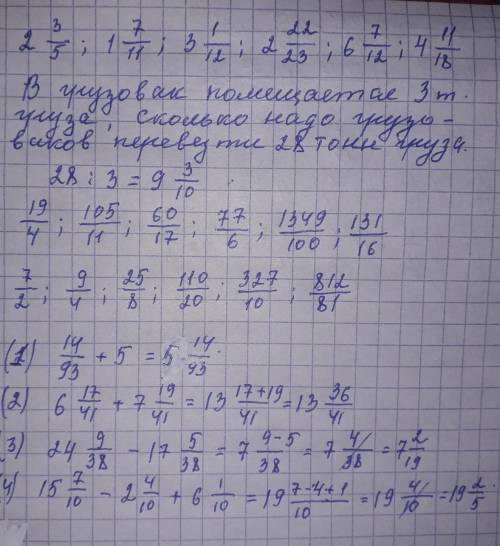 2 3/5 ; 1 7/11 ; 3 1/12 ; 2 22/23 ; 6 7/12 ; 4 11/18
В грузовак помещается 3 т.
груза, Сколько надо грузо-
ваков перевезти 28 тонн груза.
28 : 3 = 9 3/10
19/4 ; 105/11 ; 60/17 ; 77/6 ; 1349/100 ; 131/16
7/2 ; 9/4 ; 25/8 ; 110/20 ; 327/10 ; 812/81
(1) 14/93 + 5 = 5 14/93
(2) 6 17/41 + 7 19/41 = 13 17+19/41 = 13 36/41
3) 24 9/38 - 17 5/38 = 7 9-5/38 = 7 4/38 = 7 2/19
4) 15 7/10 - 2 4/10 + 6 1/10 = 19 7-4+1/10 = 19 4/10 = 19 2/5